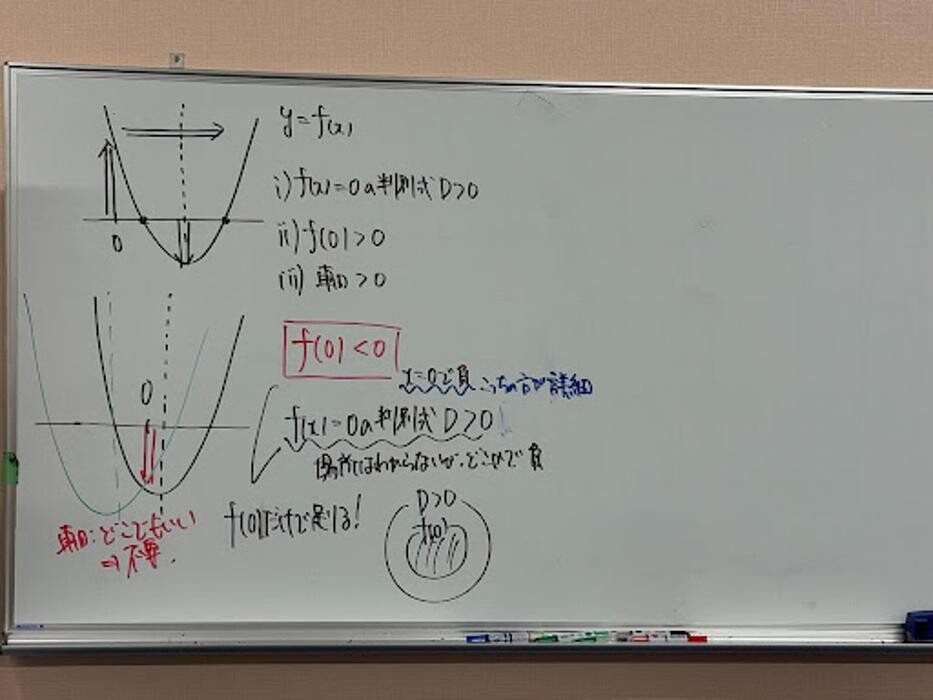 y=f(x)
i) f(x)=0の判別式 D>0
ii) f(0)>0
iii) 軸>0
0
f(0)<0
x=0で負 こっちの方が詳細
0
f(x)=0の判別式 D>0
場所はわからないが、どこかで負
f(0)だけで足りる!
D>0
f(0)
軸:どこでもいい
⇒不要.